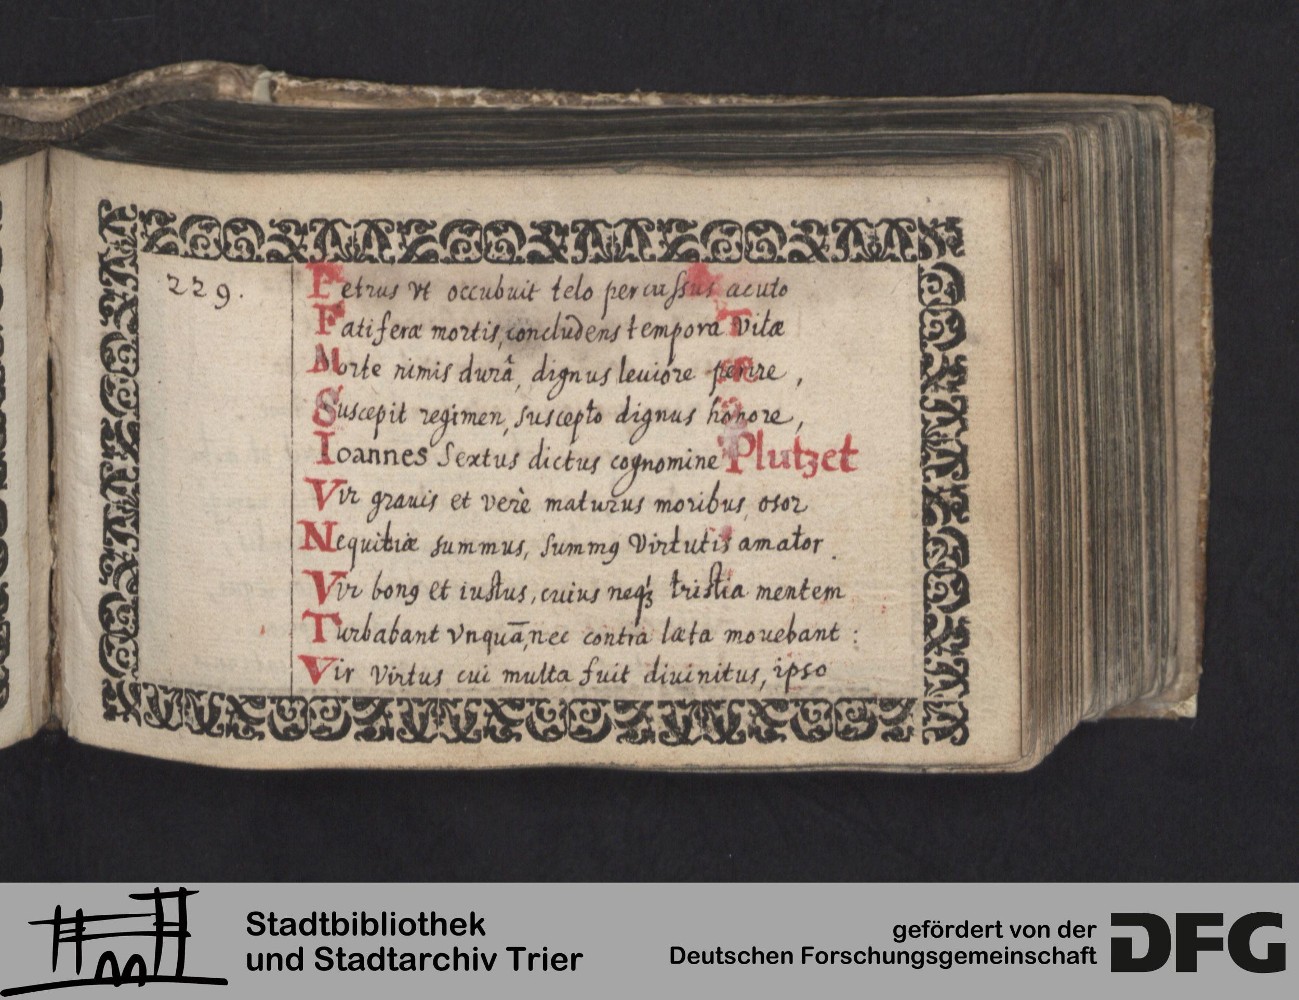 229.
Petrus vt occubuit telo percussus acuto
Fatiferæ mortis, concludens tempora Vitæ
Morte nimis durâ, dignus leuiore perire,
Suscepit regimen, suscepto dignus honore,
Ioannes Sextus dictus cognomine Plutzet
Vir grauis et verè maturus moribus, osor
Nequitiæ summus, summꝯ Virtutis amator.
Vir bonꝯ et iustus, cuius neqꝫ tristia mentem
Turbabant vnquā, nec contra læta mouebant:
Vir Virtus cui multa fuit diuinitus, ipso
Stadtbibliothek
und Stadtarchiv Trier
gefördert von der
Deutschen Forschungsgemeinschaft
DFG